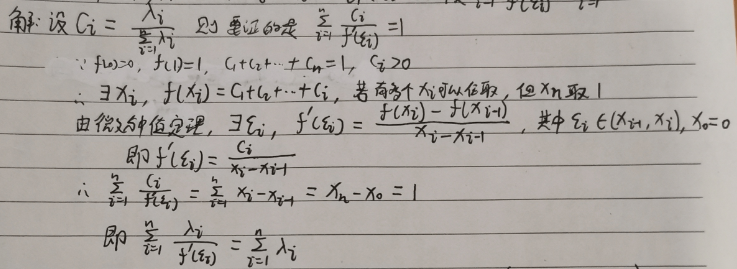 解: 设 Cᵢ = λᵢ / ∑ᵢ₌₁ⁿ λᵢ 则要证的是 ∑ᵢ₌₁ⁿ Cᵢ / f'(ξᵢ) = 1
∵ f(0)=0, f(1)=1, C₁+C₂+…+Cₙ=1, Cᵢ>0
∴ ∃xᵢ, f(xᵢ)=C₁+C₂+…+Cᵢ, 若有多个xᵢ可以任取, 但xₙ取1
由微分中值定理, ∃ξᵢ, f'(ξᵢ) = (f(xᵢ) - f(xᵢ₋₁)) / (xᵢ - xᵢ₋₁), 其中 ξᵢ ∈ (xᵢ₋₁, xᵢ), x₀=0
即 f'(ξᵢ) = Cᵢ / (xᵢ - xᵢ₋₁)
∴ ∑ᵢ₌₁ⁿ Cᵢ / f'(ξᵢ) = ∑ᵢ₌₁ⁿ xᵢ - xᵢ₋₁ = xₙ - x₀ = 1
即 ∑ᵢ₌₁ⁿ λᵢ / f'(ξᵢ) = ∑ᵢ₌₁ⁿ λᵢ